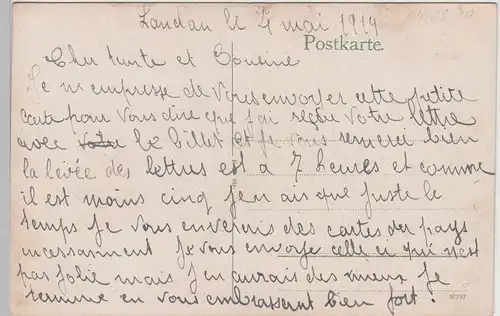 Landau le 4 mai 1919
Postkarte.
Cher tante et Cousine
Je m empresse de Vous envoyer cette petite
carte pour vous dire que j'ai reçue votre lettre
avec le billet et je vous remerci bien
la levée des lettres est a 7 heures et comme
il est moins cinq j'en ais que juste le
temps je vous enverais des cartes du pays
incessamment je vous envoye celle ci qui n'est
pas jolie mais j'en aurais des mieux je
termine en vous embrassent bien fort !